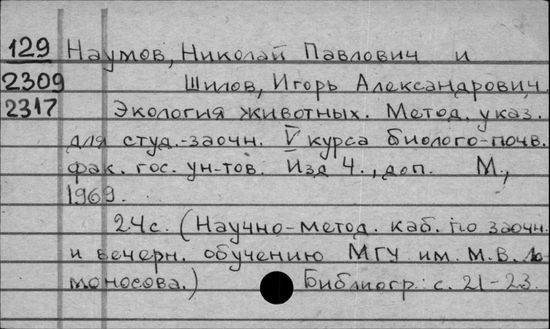 129 Наумов, Николай Павлович и
2309 Шилов, Игорь Александрович.
2317 Экология животных. Метод. указ.
для студ.-заочн. V курса биолого-почв.
фак. гос. ун-тов. Изд 4., доп. М.,
1969.
24с. (Научно-метод. каб. по заочн.
и вечерн. обучению МГУ им. М.В. Ло
моносова.) Библиогр.: с. 21-23.